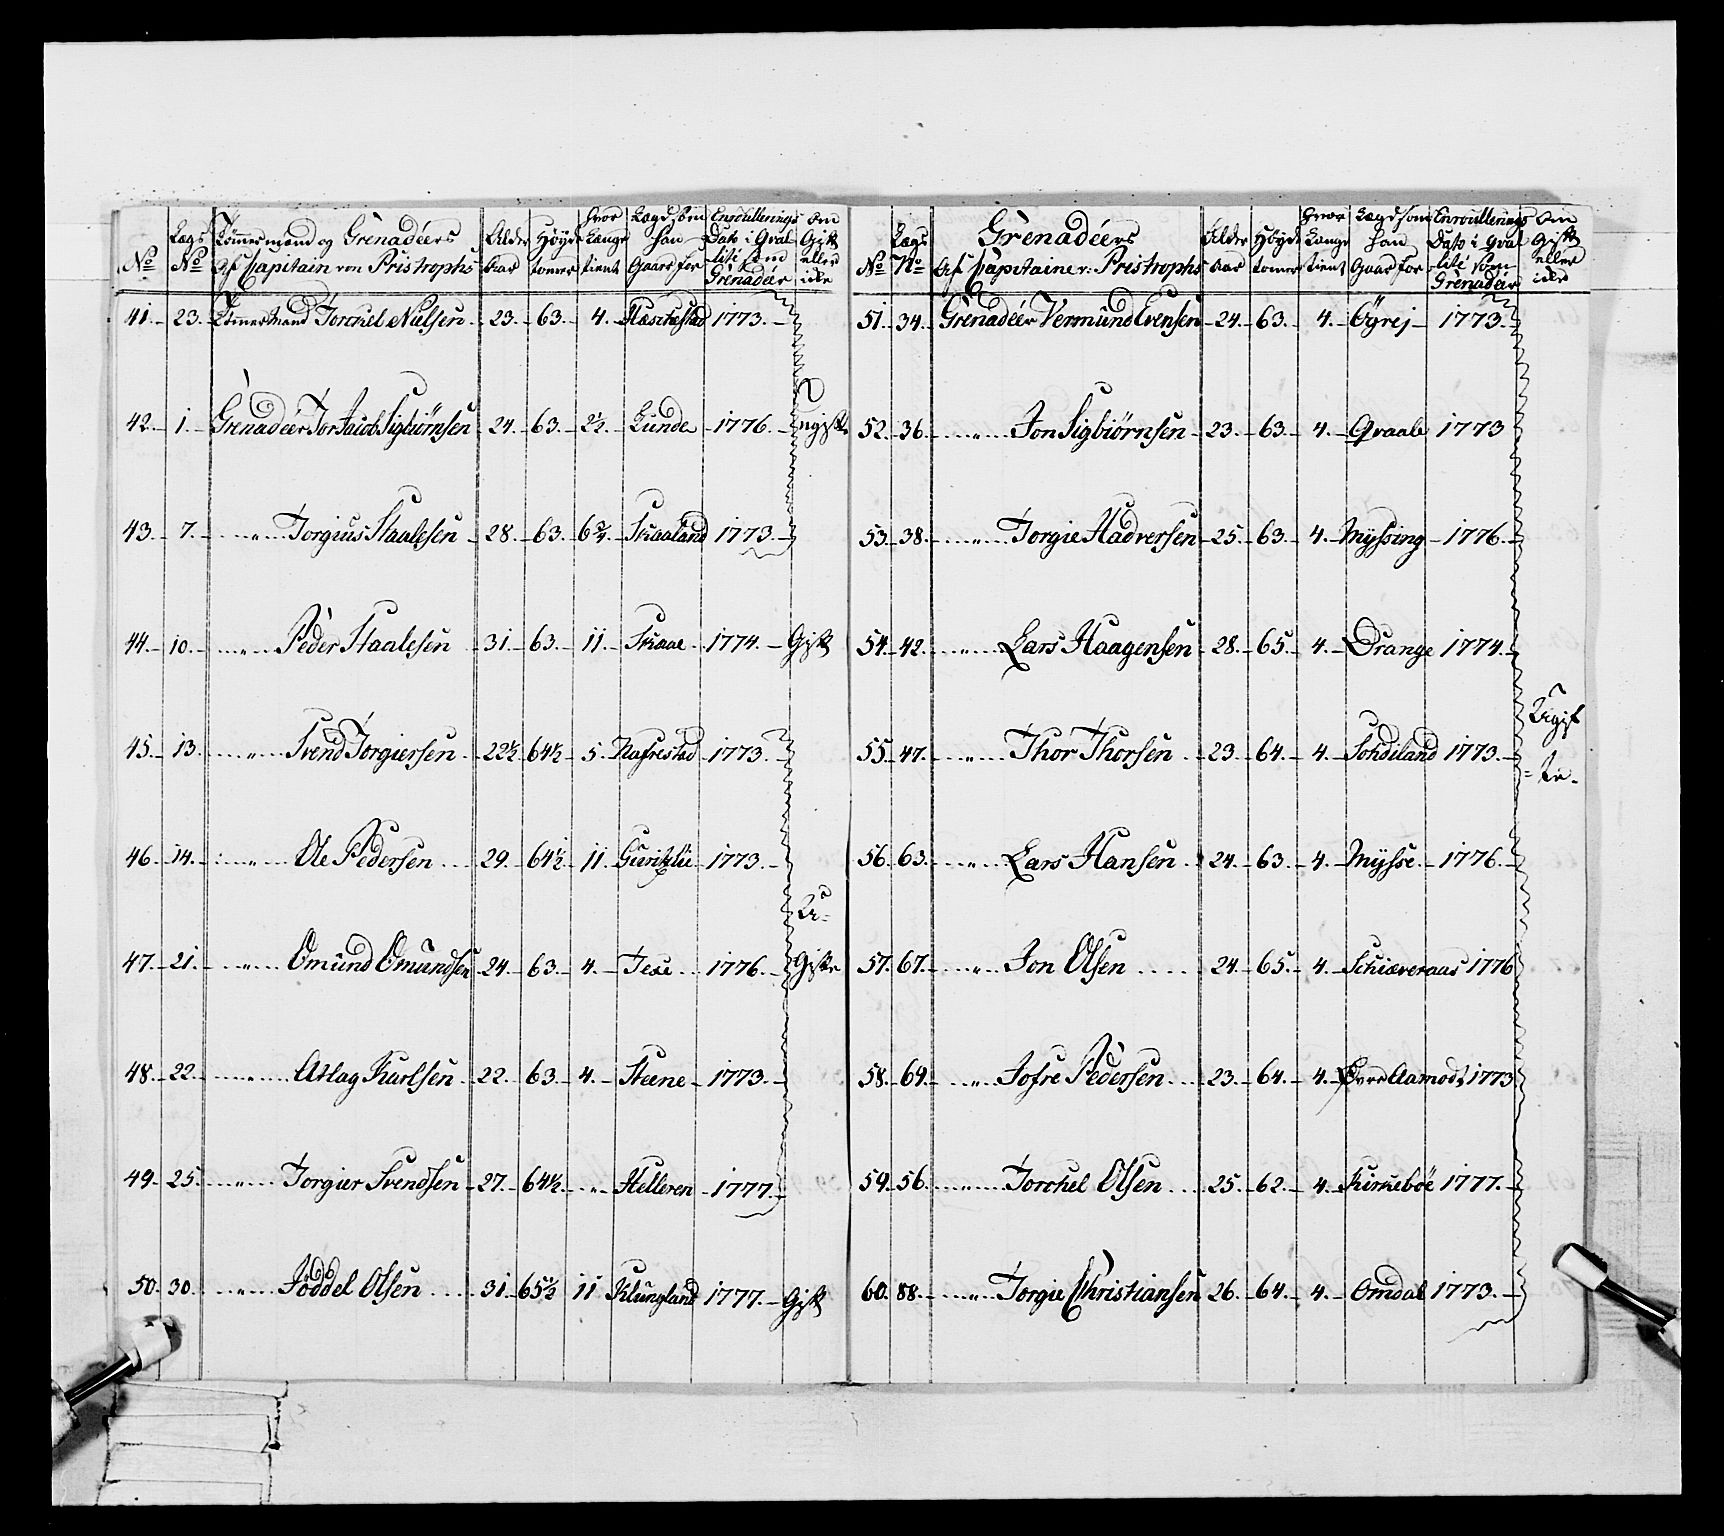 No
Lægs No
Tömmermænd og Grenadéers af Capitain von Pristrophs
Alder Aar
Höyde tommer
hvor Længe tient
Lægd som han Gaar for
Enroullerings Dato i Qvalité som Grenadéer
om Gift eller ikke
41. 23. Tömmermand Torckel Nielsen 23. 63. 4. Flæschestad 1773.
42. 1. Grenadéer Tor Jacob Sigbiörnsen 24. 63. 2½ Lunde 1776. Ugift
43. 7. " Torgius Staalesen 28. 63. 6¾ Skaaland 1773.
44. 10. " Peder Staalesen 31. 63. 11. Skaae 1774. Gift
45. 13. " Svend Torgiersen 22½ 64½ 5. Nafrestad 1773.
46. 14. " Ole Pedersen 29. 64½ 11 1773.
U-
47. 21. " Omund Omundsen 24. 63. 4. 1776. Gifte
48. 22. " Atlag Karlsen 22. 63. 4. Steene 1773.
49. 25. " Torgier Svendsen 27. 64½ " Helleren 1777.
50. 30. " Joddel Olsen 31. 65½ 11 Klungland 1777. Gift
No
Lægs No
Grenadéers af Capitaine v: Pristrophs
Alder Aar
Höyde tommer
hvor Længe tient
Lægd som han Gaar for
Enroullerings Dato i Qvalité som Grenadéer
om Gift eller ikke
51. 34. Grenadéer Vermund Evensen 24. 63. 4. Öyrej 1773.
52. 36. " Jon Sigbiörnsen 23. 63. 4. Qvaale 1773
53. 38. " Torgie Hadversen 25. 63. 4. Myssing 1776.
54. 42. " Lars Haagensen 28. 65. 4. Drange 1774.
Ugif
55. 47. " Thor Thorsen 23. 64. 4. Sohdiland 1773. = te.
56. 63. " Lars Hansen 24. 63. 4. Mysse 1776.
57. 67. " Jon Olsen 24. 65. 4. Schiæveraas 1776
58. 64. " Jofre Pedersen 23. 64. 4. Övre Aamodt 1773
59. 56. " Torckel Olsen 25. 62. 4. Kirkeböe 1777.
60. 88. " Torgie Christiansen 26. 64. 4. Omdal 1773.